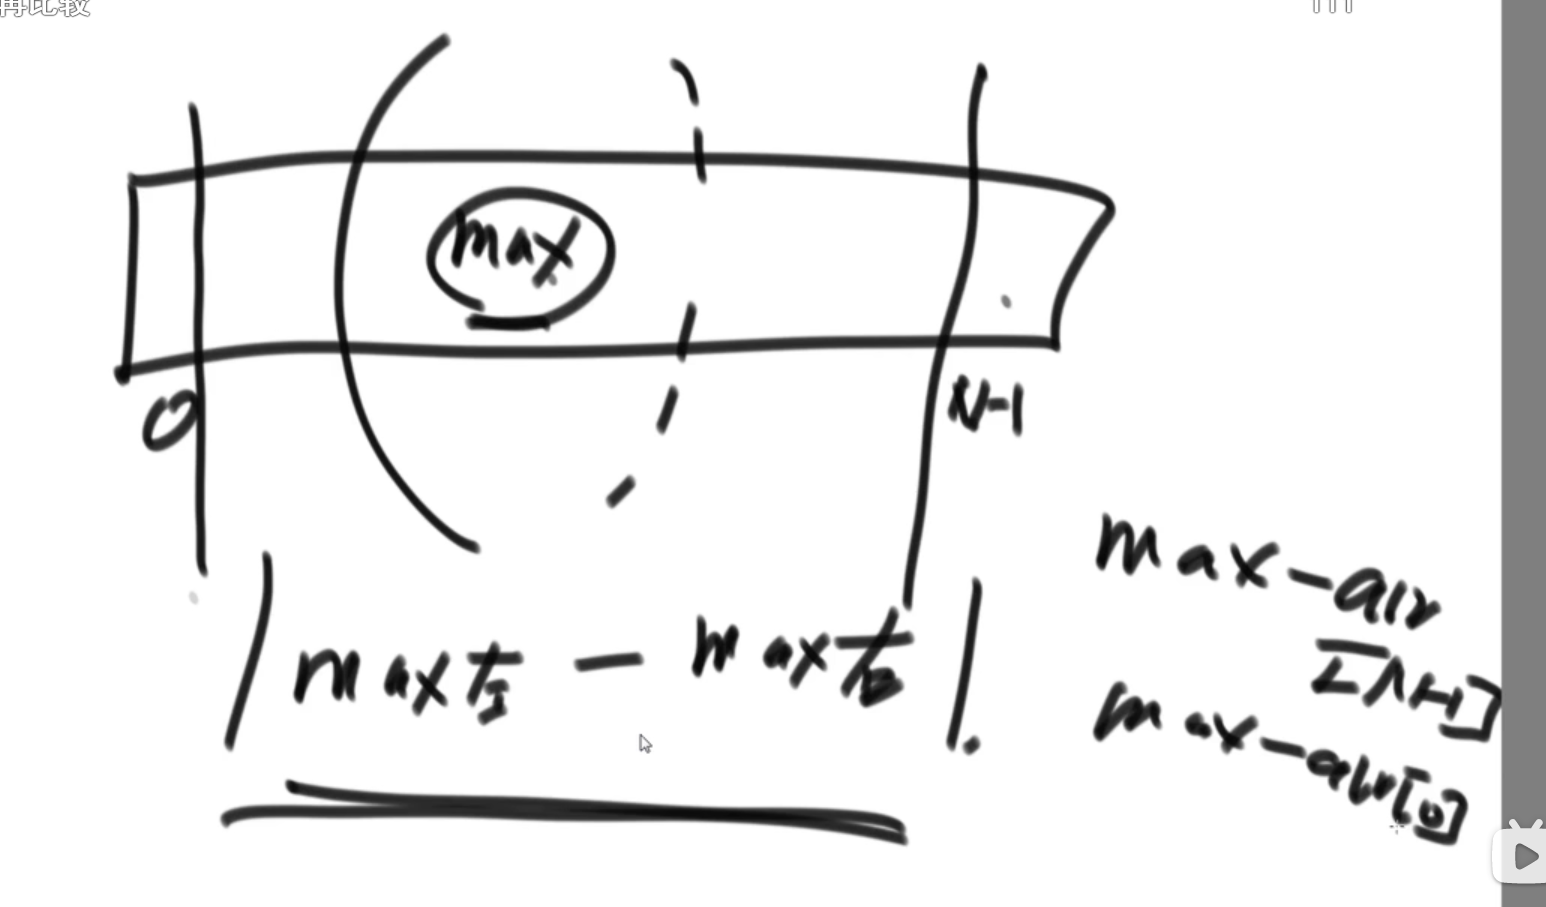 再比较
max
0
N-1
|max左 - max右|.
max-arr
[N-1]
max-arr[0]